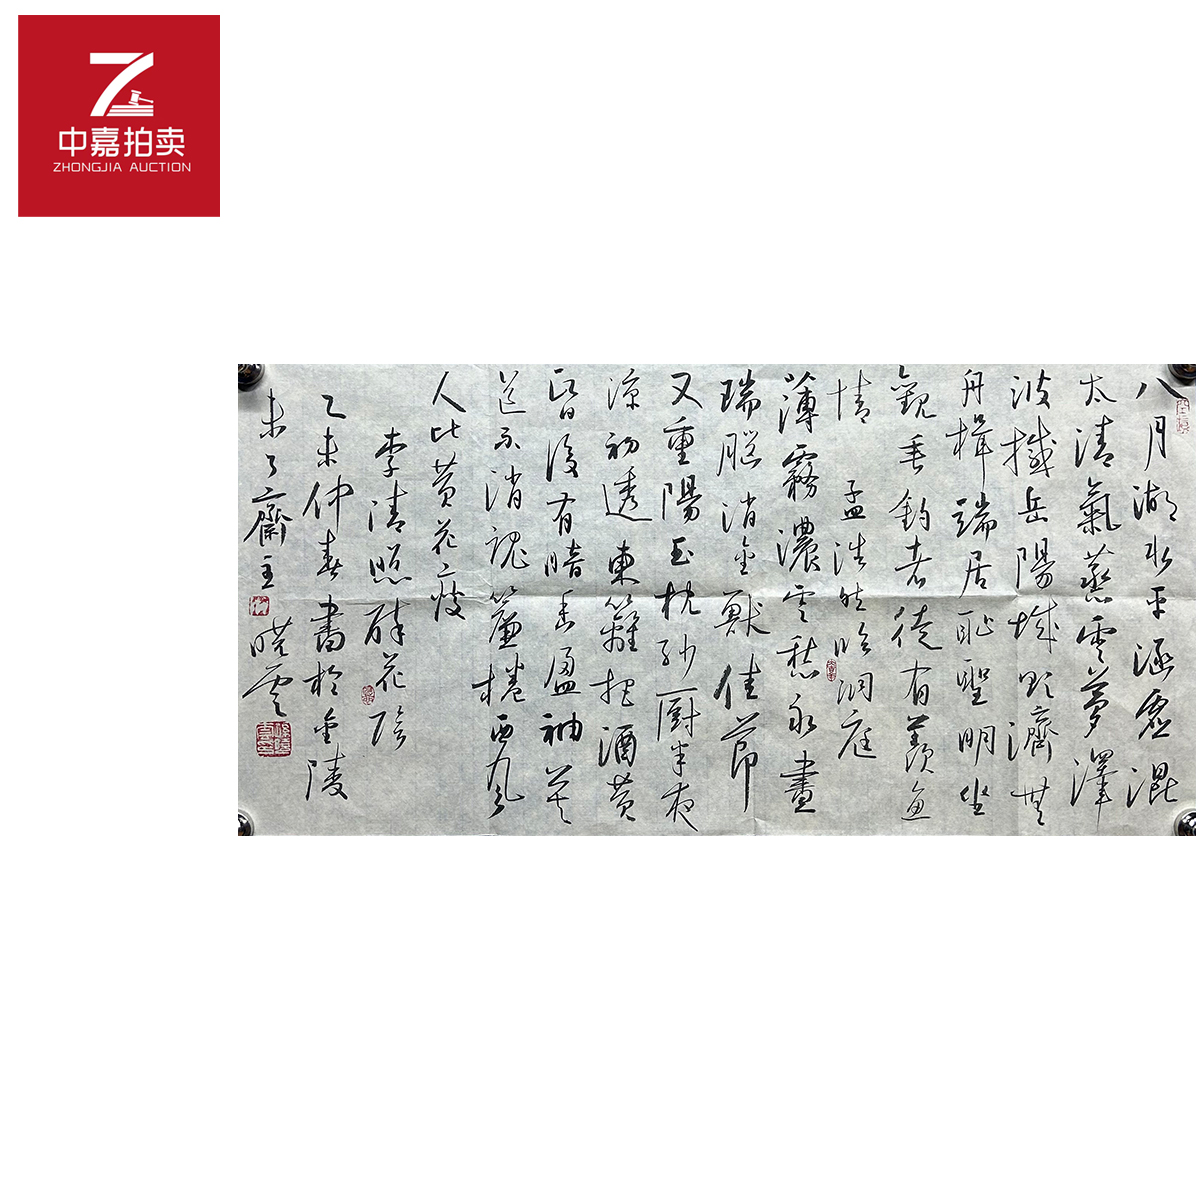 中嘉拍卖
ZHONGJIA AUCTION
八月湖水平涵虚混
太清氣蒸雲夢澤
波撼岳陽城欲濟無
舟楫端居恥聖明坐
觀垂釣者徒有羨魚
情 孟浩然臨洞庭
薄霧濃雲愁永晝
瑞腦消金獸佳節
又重陽玉枕紗厨半夜
涼初透東籬把酒黄
昏後有暗香盈袖莫
道不消魂簾捲西風
人比黄花瘦
李清照醉花陰
乙未仲春書於金陵
未了齋主 曉雲